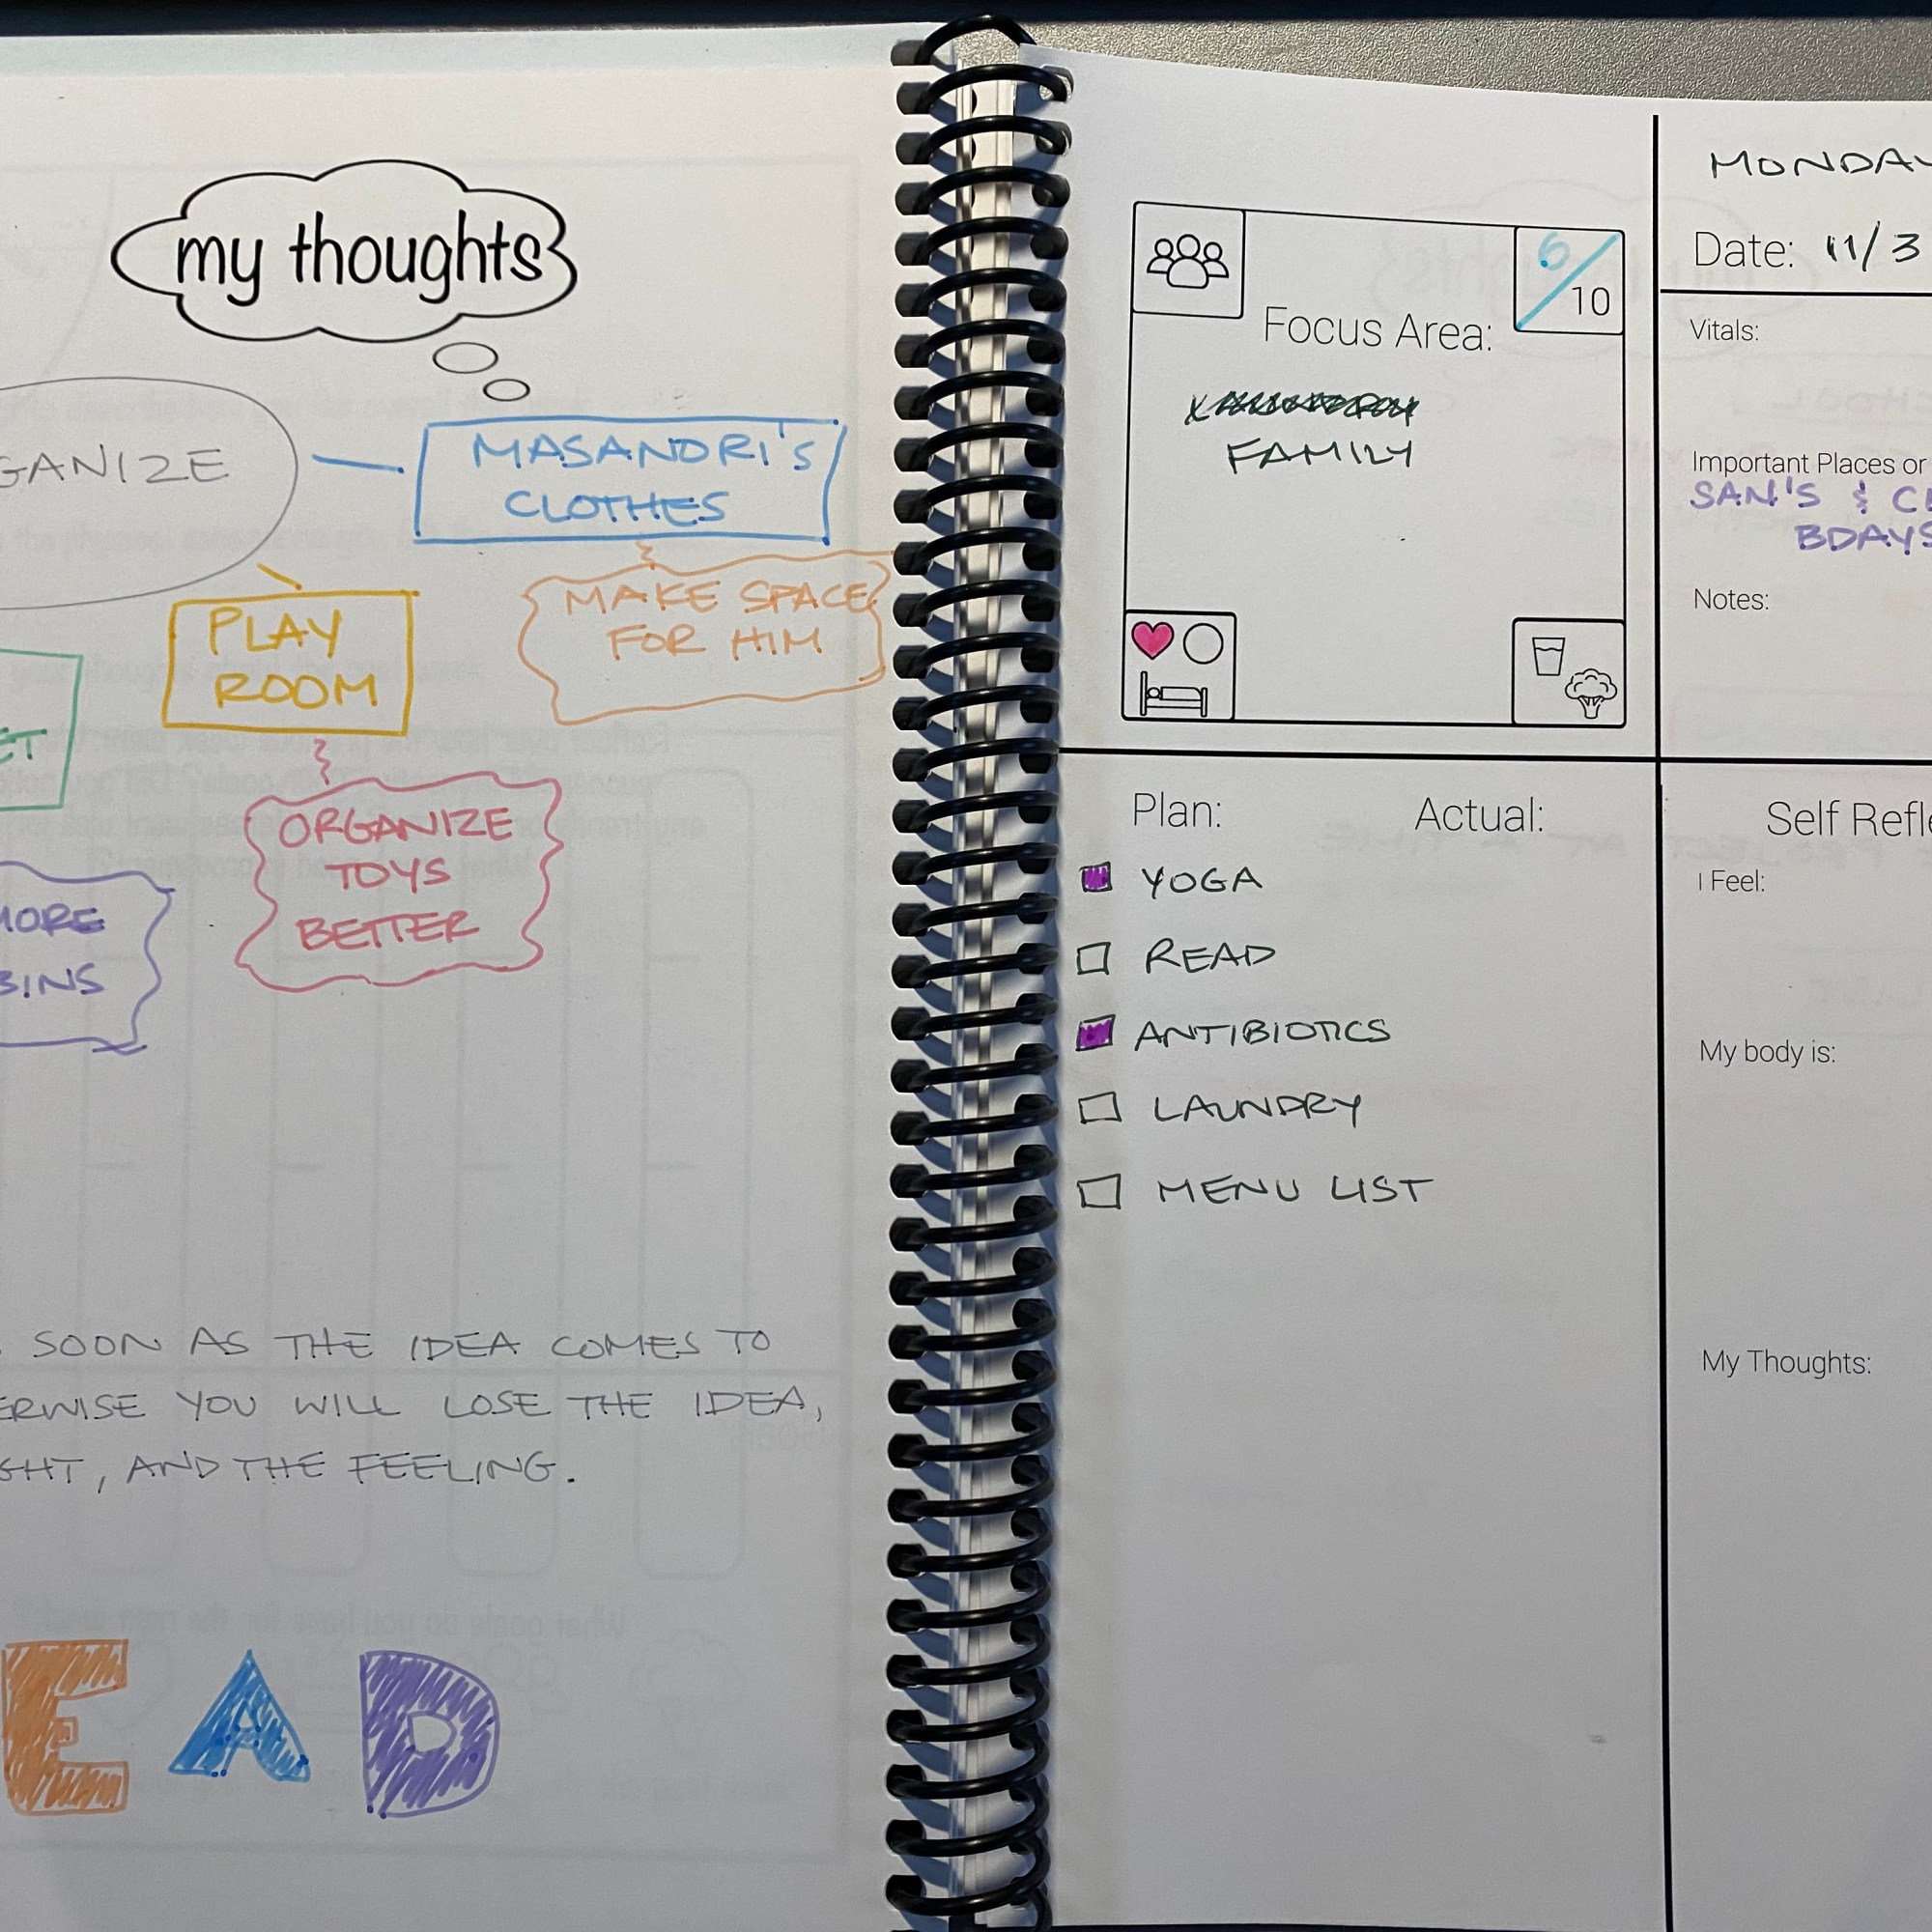 my thoughts
GANIZE
MASANDRI'S
CLOTHES
PLAY
ROOM
MAKE SPACE
FOR HIM
ET
ORGANIZE
TOYS
BETTER
MORE
BINS
SOON AS THE IDEA COMES TO
ERWISE YOU WILL LOSE THE IDEA,
GHT, AND THE FEELING.
EAD
6/10
Focus Area:
FAMILY
MONDAY
Date: 11/3
Vitals:
Important Places or
SAN'S &
BDAYS
Notes:
Plan:
Actual:
YOGA
READ
ANTIBIOTICS
LAUNDRY
MENU LIST
Self Refle
I Feel:
My body is:
My Thoughts: